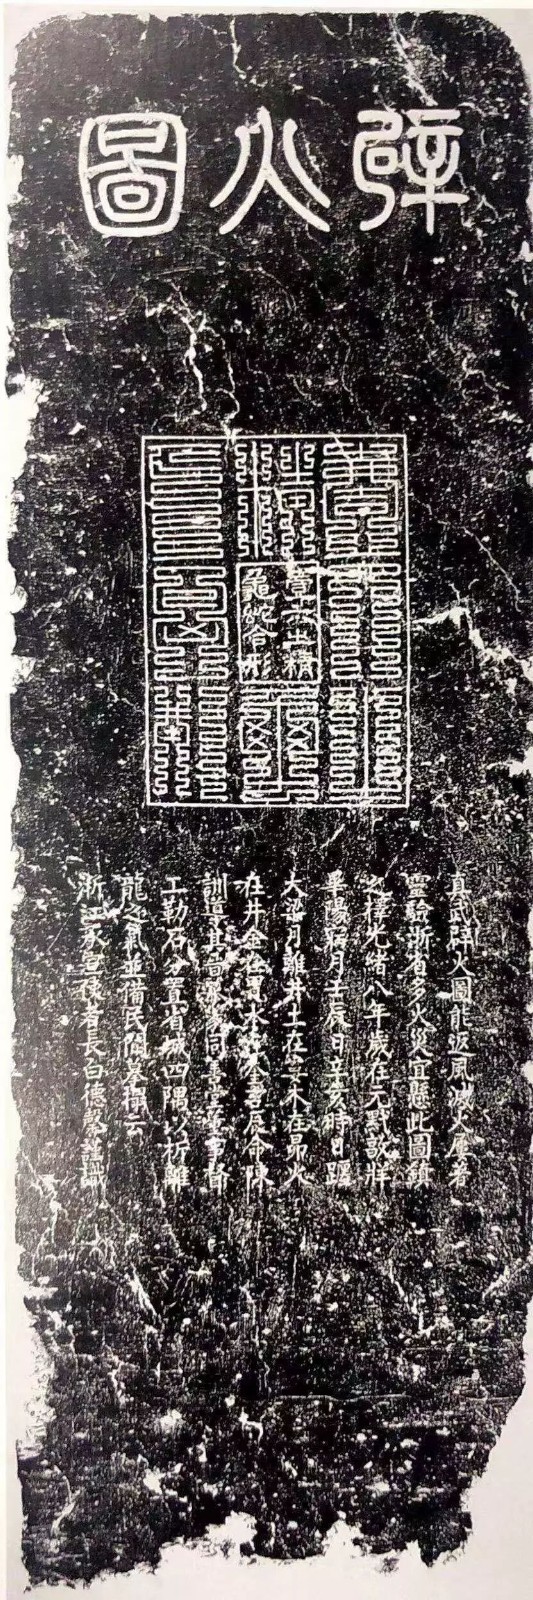 辟火圖
壹六之精
龜蛇合形
真武辟火圖能返風滅火屢著
靈驗浙省多火災宜懸此圖鎮
之擇光緒八年歲在元黓敦牂
畢陽寎月壬辰日辛亥時日躔
大梁月離井土在婁木在昴火
在井金在胃水在奎辰命陳
訓導其同善堂董事督
工勒石分置省城四隅以折離
龍之氣並備民間摹搨云
浙江承宣使者長白德馨謹識